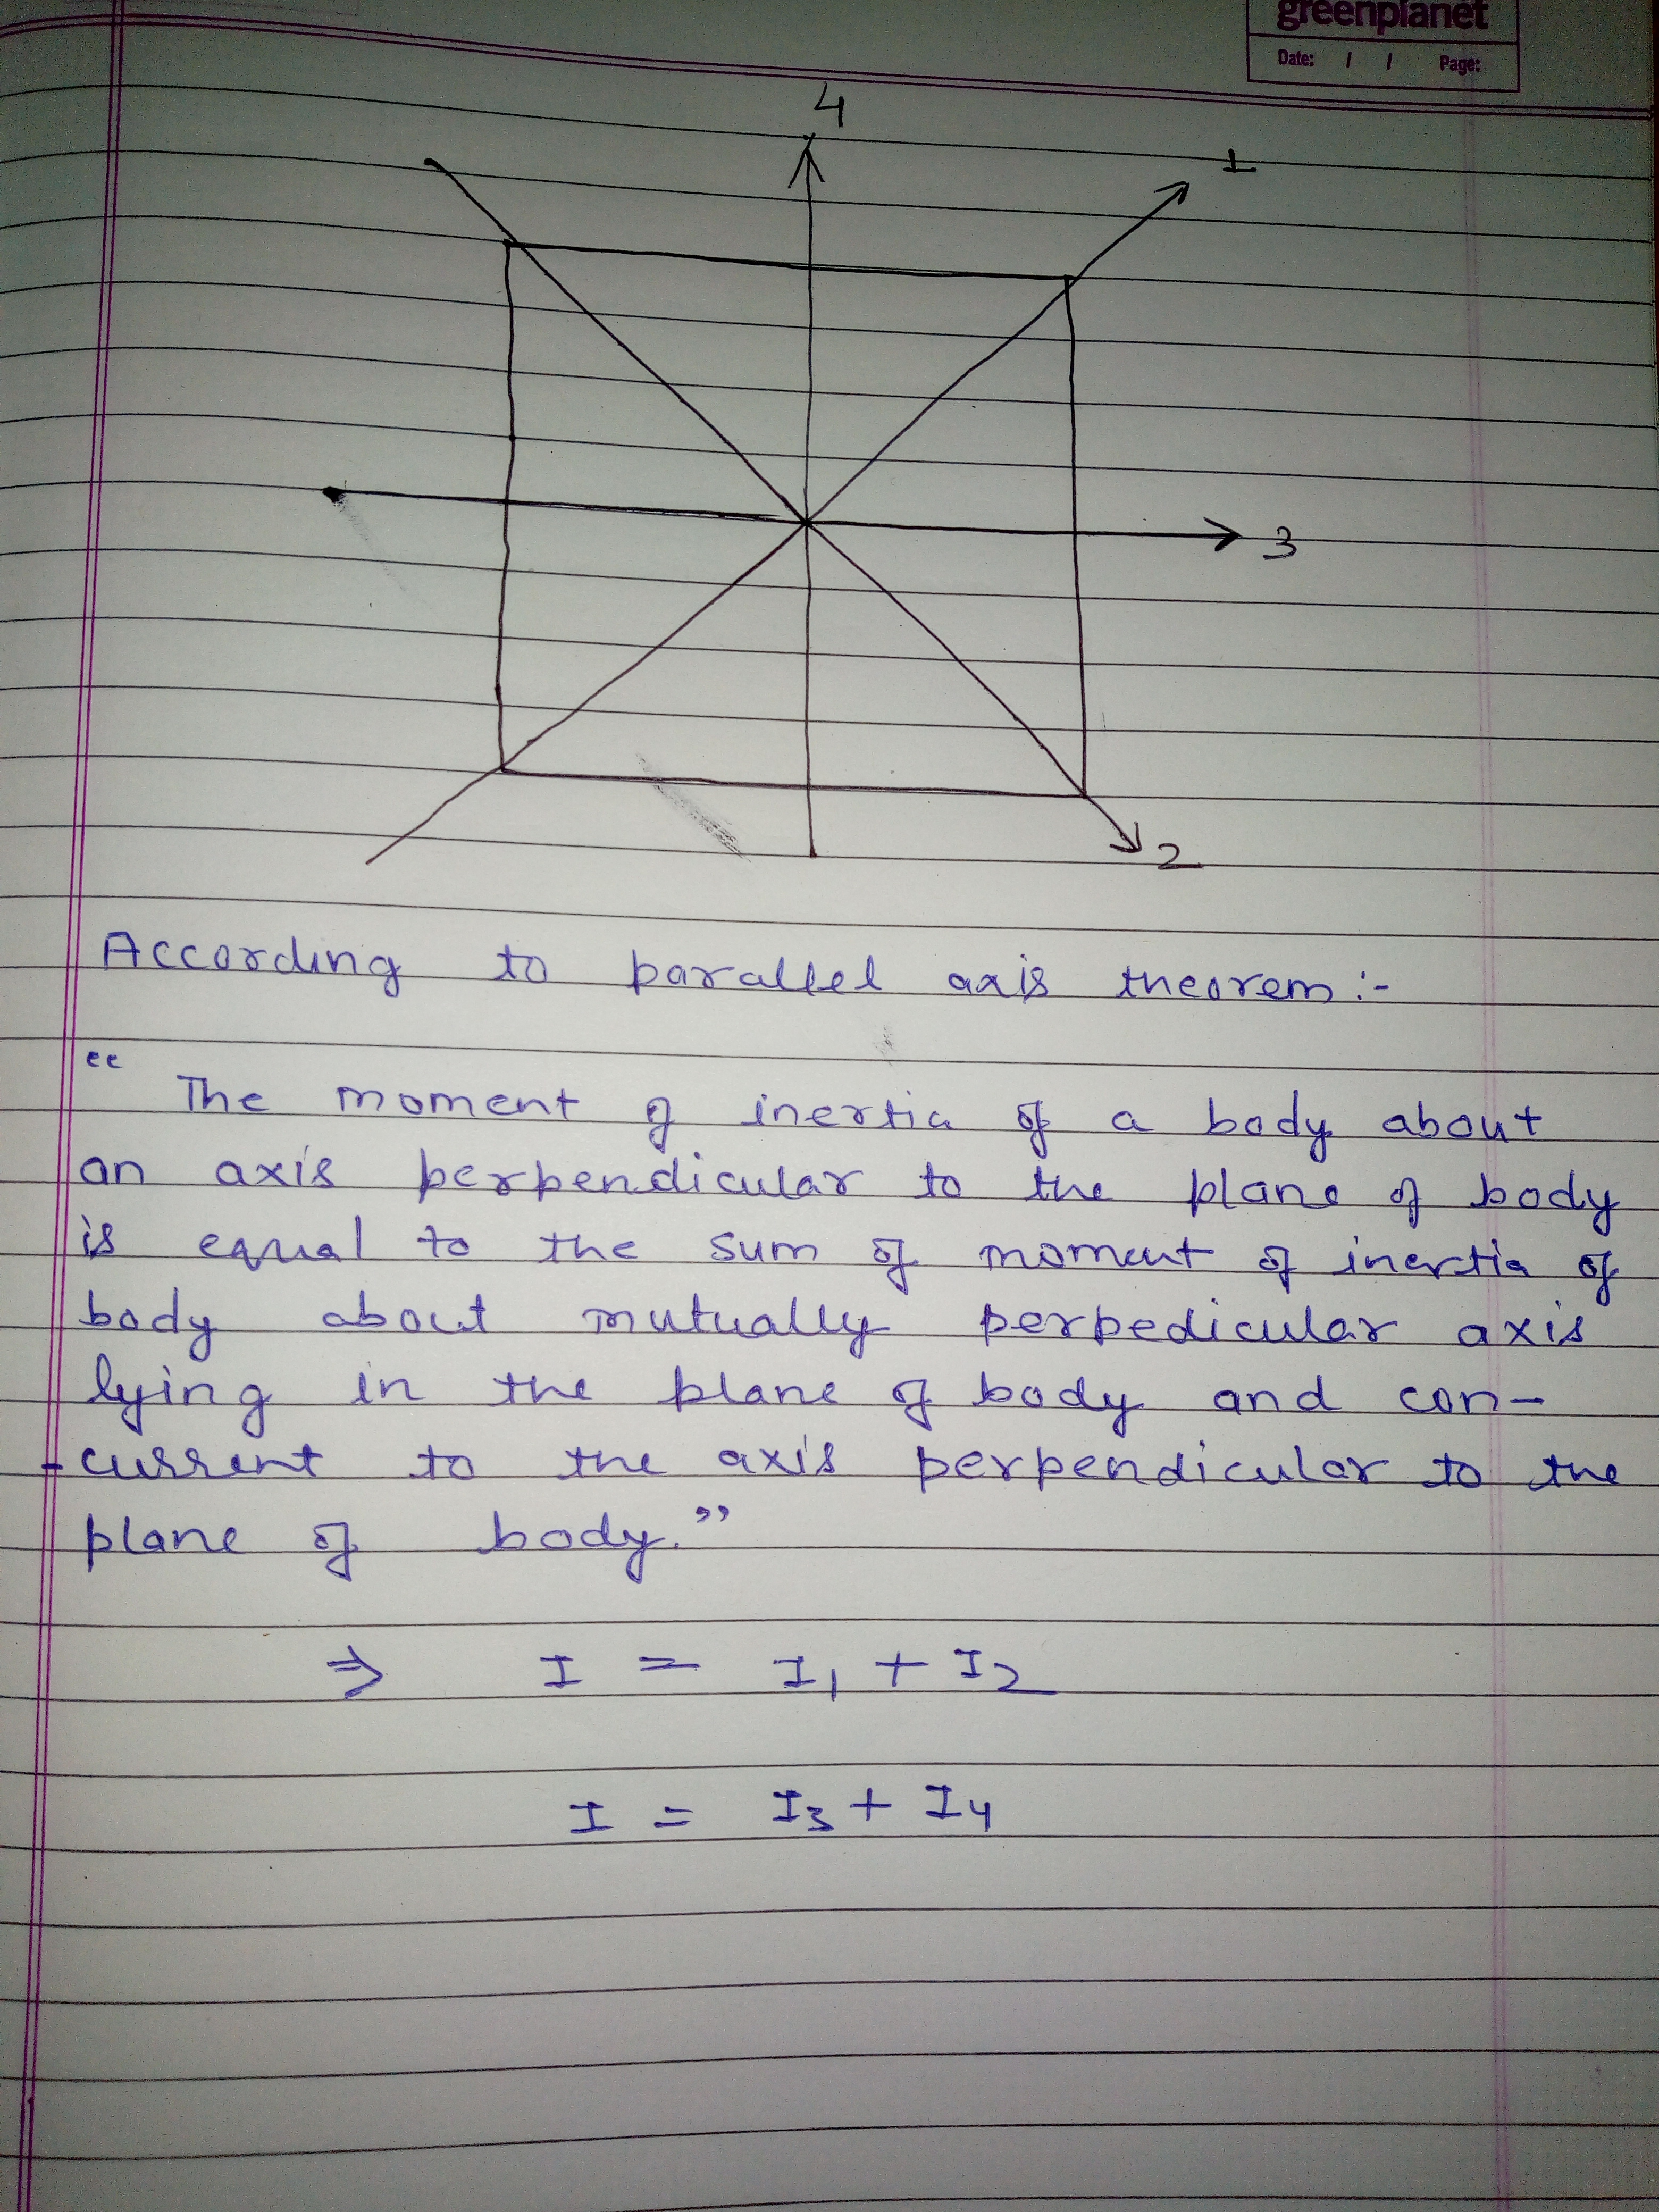 greenplanet
Date: / / Page:
4
1
3
2
According to parallel axis theorem:-
“ The moment of inertia of a body about
an axis perpendicular to the plane of body
is equal to the sum of moment of inertia of
body about mutually perpedicular axis
lying in the plane of body and con-
-current to the axis perpendicular to the
plane of body.”
⇒ I = I₁ + I₂
I = I₃ + I₄